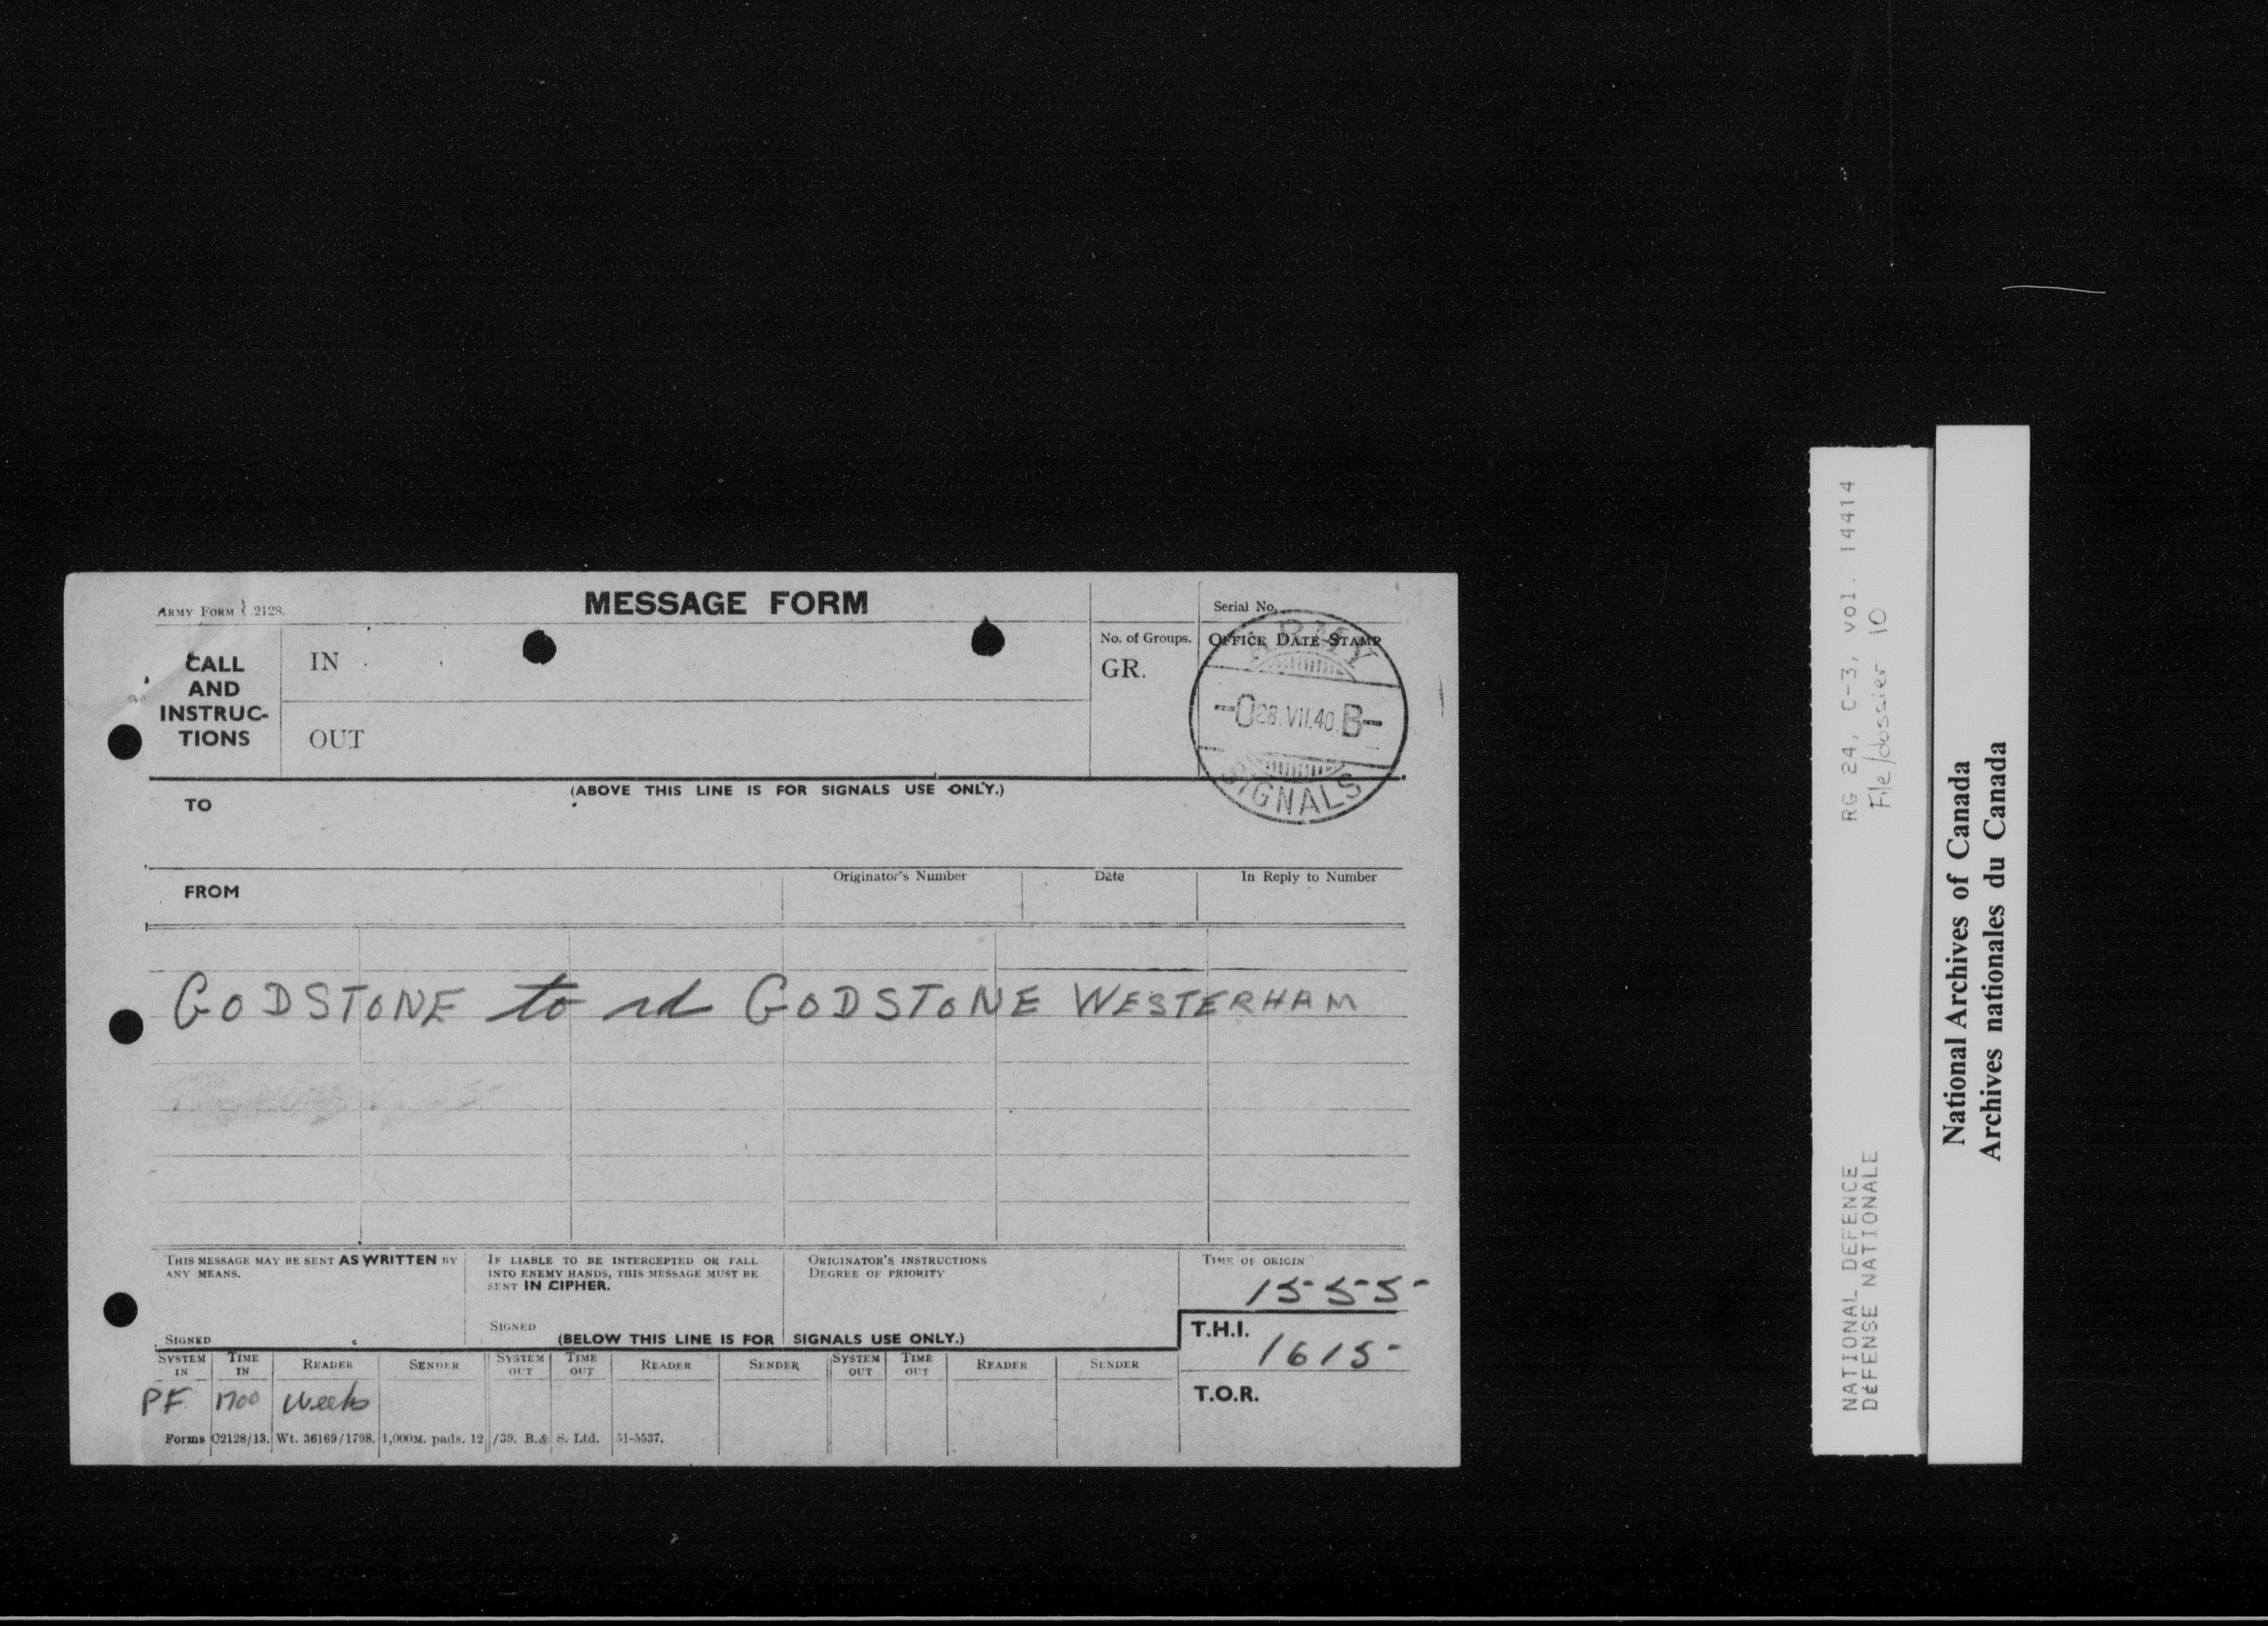 ARMY FORM C.2128.
MESSAGE FORM
Serial No.
CALL AND INSTRUC-TIONS
IN
OUT
No. of Groups.
GR.
OFFICE DATE-STAMP
ARMY
28.VII.40. B
SIGNALS
(ABOVE THIS LINE IS FOR SIGNALS USE ONLY.)
TO
FROM
Originator's Number
Date
In Reply to Number
GODSTONE to rd GODSTONE WESTERHAM
THIS MESSAGE MAY BE SENT AS WRITTEN BY
ANY MEANS.
SIGNED
IF LIABLE TO BE INTERCEPTED OR FALL
INTO ENEMY HANDS, THIS MESSAGE MUST BE
SENT IN CIPHER.
SIGNED
ORIGINATOR'S INSTRUCTIONS
DEGREE OF PRIORITY
TIME OF ORIGIN
1555
(BELOW THIS LINE IS FOR SIGNALS USE ONLY.)
T.H.I.
1615
T.O.R.
SYSTEM IN
TIME IN
READER
SENDER
SYSTEM OUT
TIME OUT
READER
SENDER
SYSTEM OUT
TIME OUT
READER
SENDER
PF 1700 Weeks
Forms C2128/13. Wt. 36169/1798. 1,000M. pads. 12/39. B.& S. Ltd. 51-5537.
RG 24, C-3, vol. 14414
File/dossier 10
NATIONAL DEFENCE
DÉFENSE NATIONALE
National Archives of Canada
Archives nationales du Canada